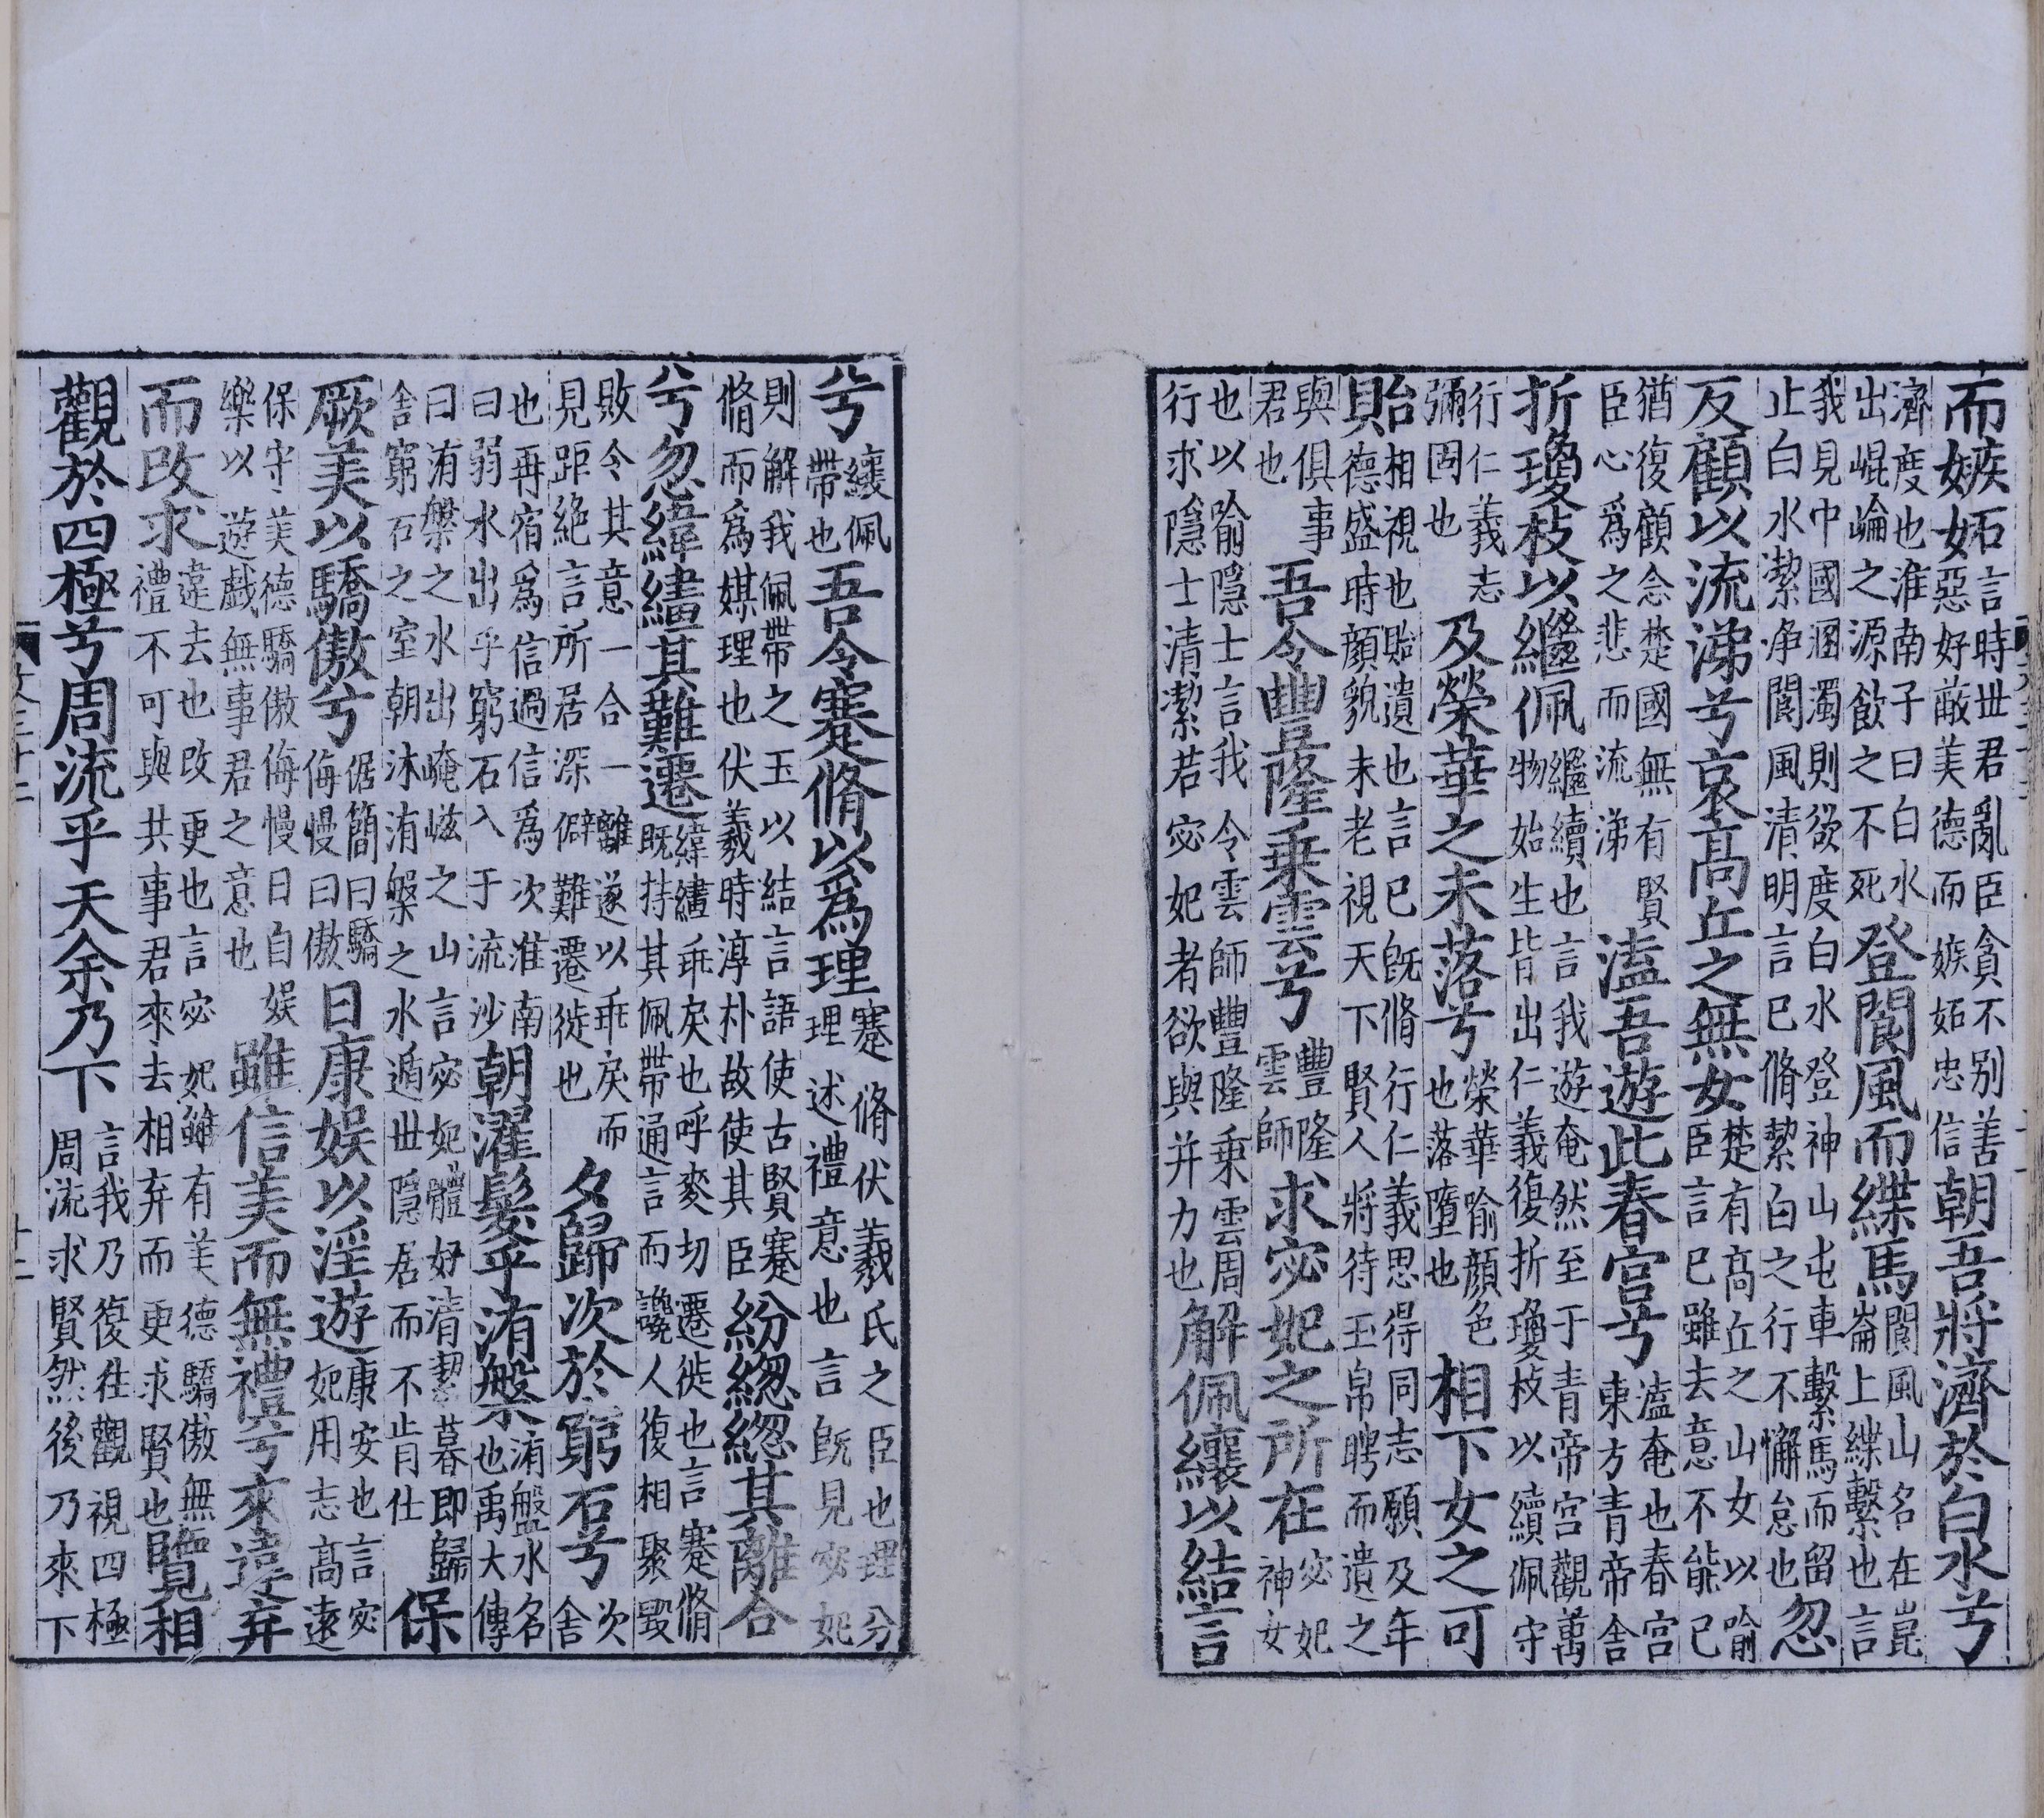 而嫉妬言時世君亂臣貪不别善惡好蔽美德而嫉妬忠信朝吾將濟於白水兮
濟度也淮南子曰白水出崐崘之源飲之不死登閬風而緤馬閬風山名在崑崙上緤繫也言
我見中國溷濁則欲度白水登神山屯車繫馬而留止白水潔净閬風清明言已脩絜白之行不懈怠也忽
反顧以流涕兮哀髙丘之無女楚有髙丘之山女以喻臣言已雖去意不能已
猶復顧念楚國無有賢臣心爲之悲而流涕溘吾遊此春宫兮溘奄也春宫東方青帝舍
折瓊枝以繼佩繼續也言我遊奄然至于青帝宫觀萬物始生皆出仁義復折瓊枝以續佩守
行仁義志彌固也及榮華之未落兮榮華喻顔色也落墮也相下女之可
貽相視也貽遺也言已旣脩行仁義思得同志願及年德盛時顔貌未老視天下賢人將待玉帛聘而遺之
與俱事君也吾令豐隆乗雲兮豐隆雲師求宓妃之所在宓妃神女
也以喻隱士言我令雲師豐隆乗雲周行求隱士清潔若宓妃者欲與并力也解佩纕以結言
兮纕佩帶也吾令蹇脩以爲理蹇脩伏羲氏之臣也理分理述禮意也言旣見宓妃
則解我佩帶之玉以結言語使古賢蹇脩而爲媒理也伏羲時淳朴故使其臣紛緫緫其離合
兮忽緯繣其難遷緯繣乖戾也呼麥切遷徙也言蹇脩旣持其佩帶通言而讒人復相聚毀
敗令其意一合一離遂以乖戾而見距絶言所居深僻難遷徙也夕歸次於窮石兮次舍
也再宿爲信過信爲次淮南曰弱水出乎窮石入于流沙朝濯髮乎洧槃洧盤水名也禹大傳
曰洧槃之水出崦嵫之山言宓妃體好清絜暮即歸舍窮石之室朝沐洧槃之水遁世隱居而不肯仕保
厥美以驕傲兮倨簡曰驕侮慢曰傲日康娱以淫遊康安也言宓妃用志髙遠
保守美德驕傲侮慢日自娱樂以遊戲無事君之意也雖信美而無禮兮來違弃
而改求違去也改更也言宓妃雖有美德驕傲無禮不可與共事君來去相弃而更求賢也覽相
觀於四極兮周流乎天余乃下言我乃復往觀視四極周流求賢然後乃來下